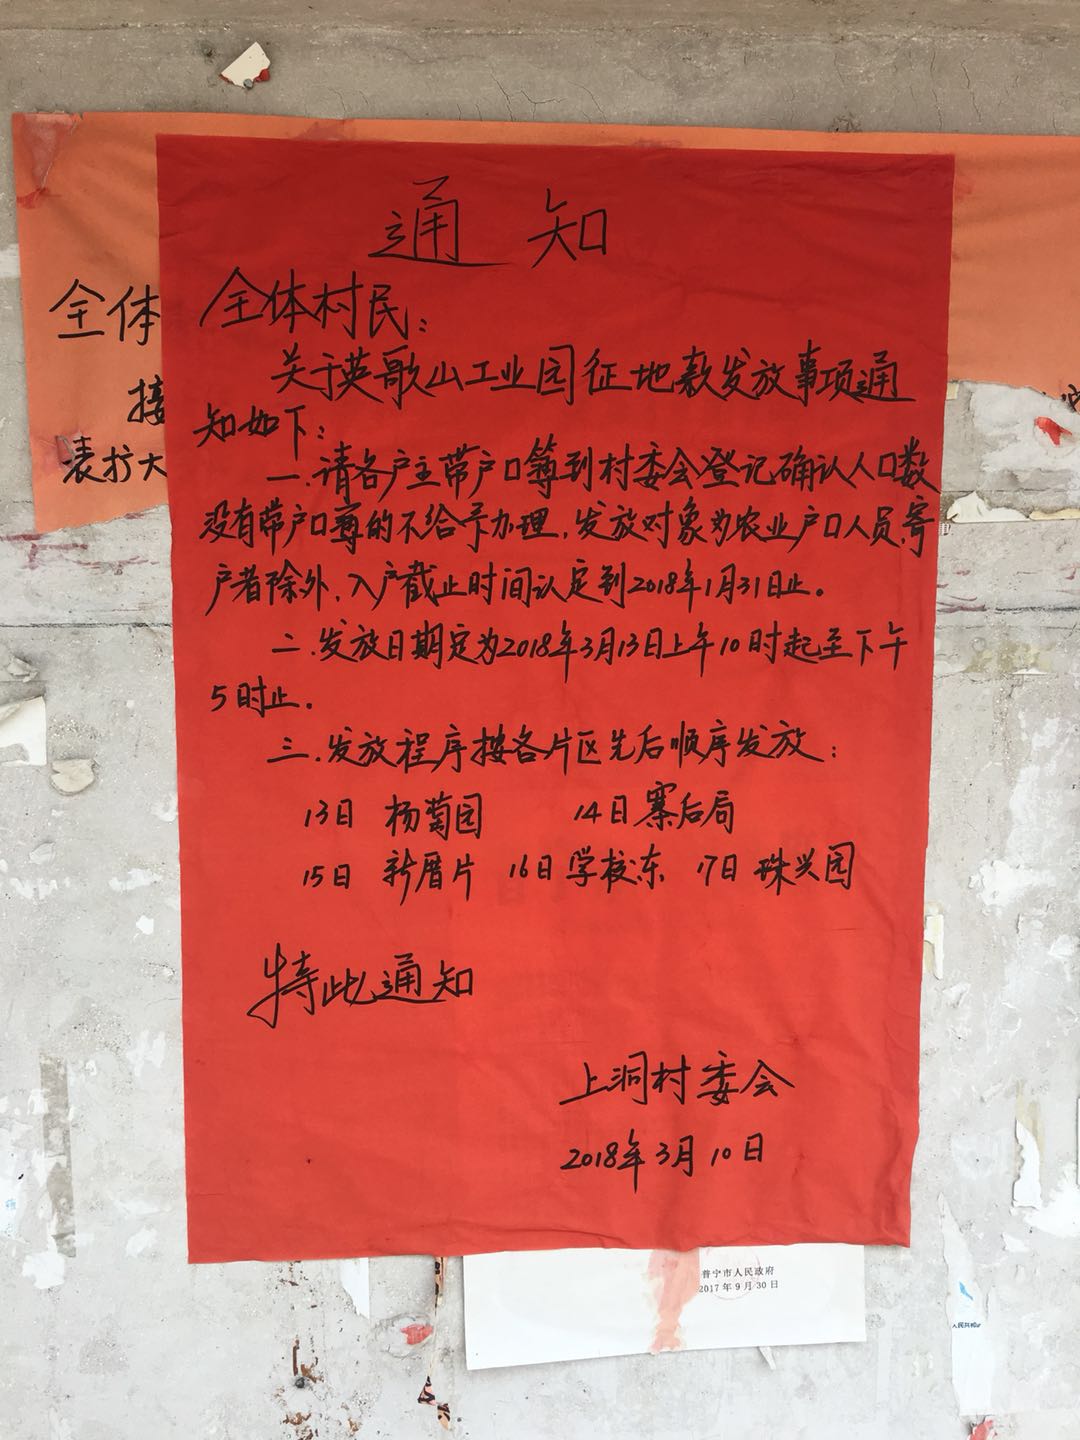 通知
全体村民：
关于英歌山工业园征地款发放事项通
知如下：
一.请各户主带户口簿到村委会登记确认人口数
没有带户口簿的不给予办理，发放对象为农业户口人员，寄
户者除外，入户截止时间认定到2018年1月31日止。
二.发放日期定为2018年3月13日上午10时起至下午
5时止。
三.发放程序按各片区先后顺序发放：
13日 杨萄园 14日寨后局
15日 新厝片 16日学校东 17日珠兴园
特此通知
上洞村委会
2018年3月10日
全体
接
表扩大
普宁市人民政府
2017年9月30日
人民共和